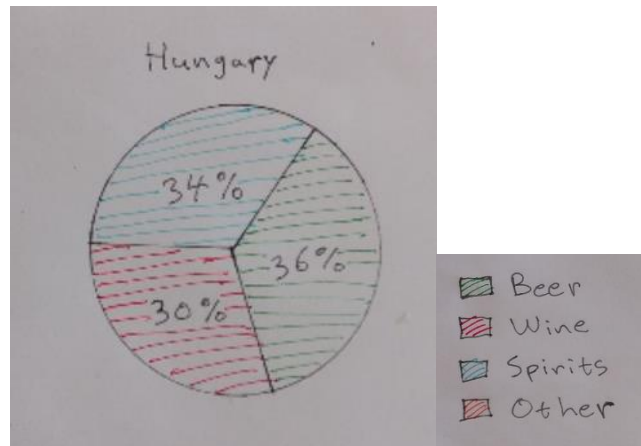 Hungary
34%
36%
30%
Beer
Wine
Spirits
Other